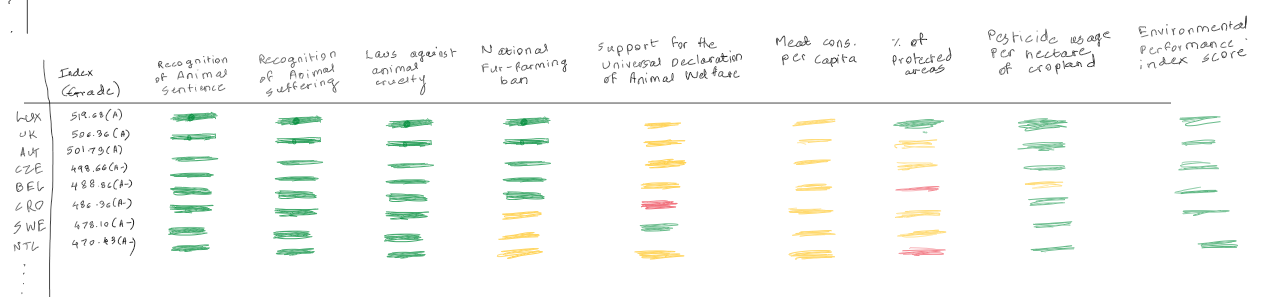 Index
(Grade)
Recognition
of Animal
Sentience
Recognition
of Animal
suffering
Laws against
animal
cruelty
National
Fur-farming
ban
Support for the
Universal Declaration
of Animal Welfare
Meat cons.
per capita
% of
Protected
areas
Pesticide usage
Per hectare
of cropland
Environmental
Performance
index score
LUX 519.63(A)
UK 506.36(A)
AUT 501.73(A)
CZE 498.66(A-)
BEL 488.86(A-)
CRO 486.36(A-)
SWE 478.10(A-)
NTL 470.43(A-)